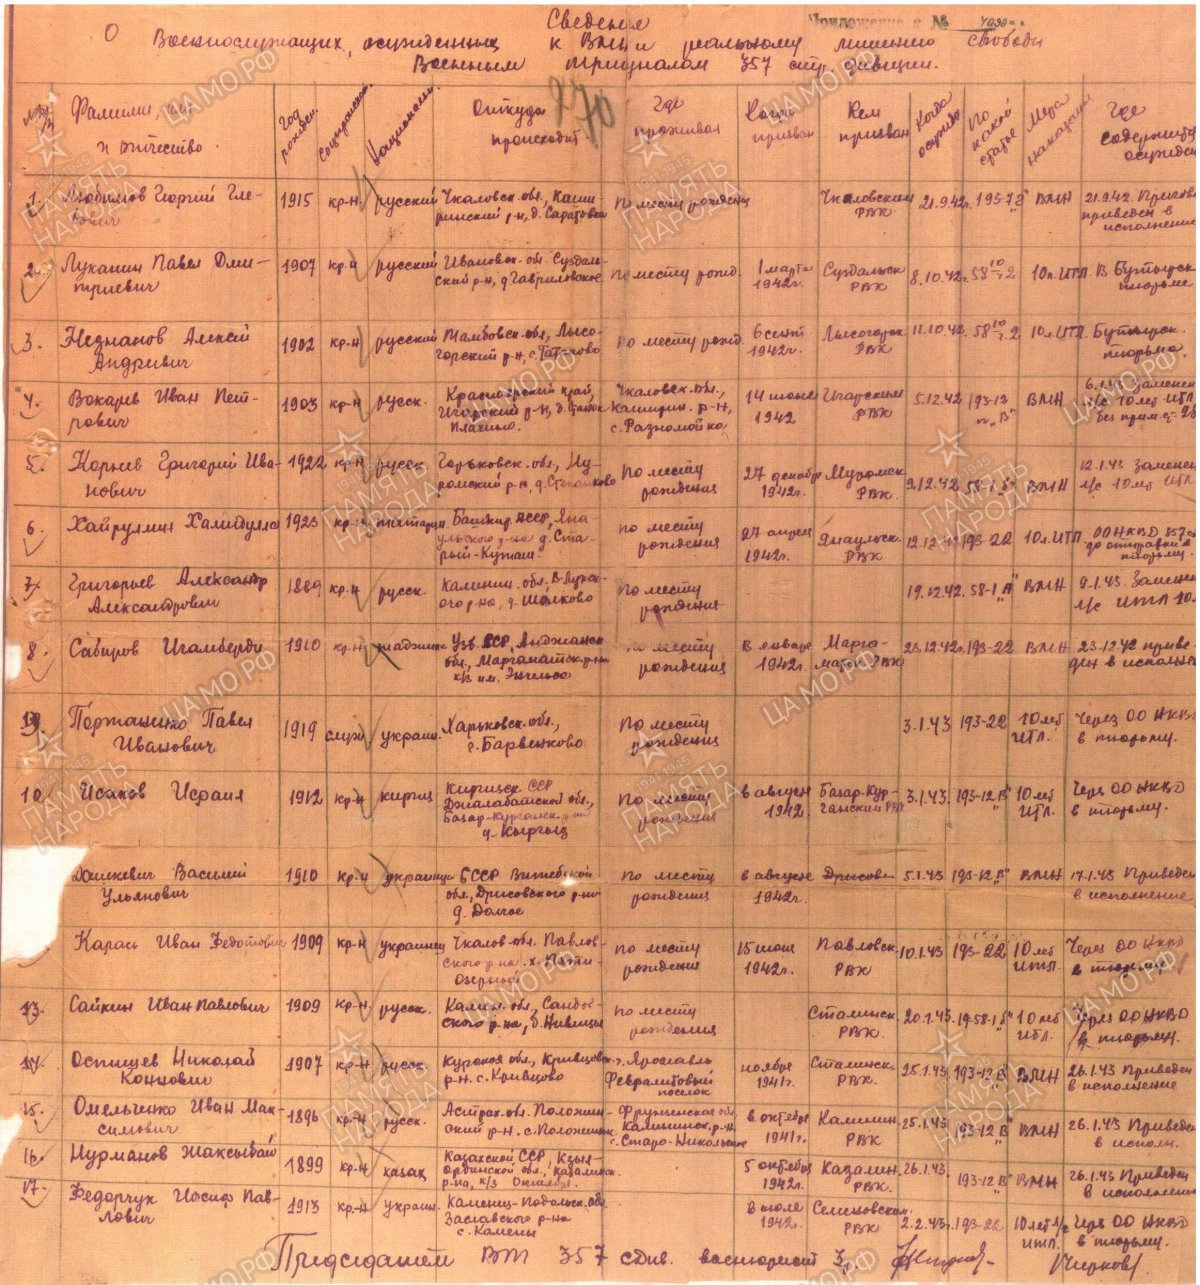 Сведения
Приложение к №
О Военнослужащих, осужденных к ВМН и реальному лишению свободы
Военным трибуналом 357 стр. дивизии.
№№ Фамилия, имя и отчество Год рожден. Соцположен. Национальн. Откуда происходит Где проживал Когда призван Кем призван Когда осужден По какой статье Мера наказан. Где содержится осужден
1. Любимов Георгий Гле-
бович 1915 кр-н русский Чкаловск. обл., Каши-
ринский р-н, д. Саратовка По месту рождения Чкаловским
РВК 21.9.42г. 193-7 ВМН 21.9.42. Приговор
приведен в
исполнение
2. Луканин Павел Дми-
триевич 1907 кр-н русский Ивановск. обл. Суздаль-
ский р-н, д. Гавриловское По месту рожд. 1 марта
1942г. Суздальск
РВК 8.10.42. 58-10 ч. 2 10л. ИТЛ. В Бутырск.
тюрьме
3. Незнанов Алексей
Андреевич 1902 кр-н русский Тамбовск. обл., Лысо-
горский р-н, с. Татаново По месту рожд. 6 сент
1942г. Лысогорск
РВК 11.10.42. 58-10 ч. 2 10л ИТЛ. Бутырск.
тюрьма.
4. Вокарев Иван Пет-
рович 1903 кр-н русск. Красноярский край,
Игарский р-н, д. Станок
Плахино. Чкаловск. обл.,
Каширин. р-н,
с. Разномойка 14 июня
1942 Игарским
РВК 5.12.42 193-12
п. „В“ ВМН 6.1.43 Заменен
н/с 10 лет ИТЛ
без прим. ст. 28
5. Корнев Григорий Ива-
нович 1922 кр-н русск. Горьковск. обл., Му-
ромский р-н, д. Степаньково По месту
рождения 27 декабр
1942г. Муромск
РВК 9.12.42 58-1 „б“ ВМН 12.1.43 Заменен
н/с 10 лет ИТЛ
6. Хайруллин Халидулла 1923 кр-н татарин Башкир. АССР, Яна-
ульского р-на д. Ста-
рый-Куюаш. по месту
рождения 27 апреля
1942г. Янаульск.
РВК 12.12.42 193-22 10л. ИТЛ. ОО НКВД 357 сд
до отправки в
тюрьму.
7. Григорьев Александр
Александрович 1889 кр-н русск. Калинин. обл. В-Лукск-
ого р-на, д. Шелково По месту
рождения 19.12.42. 58-1 „А“ ВМН 9.1.43. Заменен
н/с ИТЛ 10л.
8. Сабиров Игамберди 1910 кр-н таджик Узб. ССР, Андижанск
обл., Мархаматск. р-на
к/з им. Энгельса По месту
рождения В январе
1942г. Марга-
матск РВК 23.12.42г. 193-22 ВМН 23.12.42 приве-
ден в исполнение
9. Портаненко Павел
Иванович 1919 служ украин. Харьковск. обл.,
г. Барвенково По месту
рождения 3.1.43 193-22 10 лет
ИТЛ. Через ОО НКВД
в тюрьму.
10. Исаков Исраил 1912 кр-н киргиз Киргизск ССР
Джалабатской обл.,
Базар-Курганск. р-н
д. Кыргыз По месту
рождения в августе
1942. Базар-Кур-
ганский РВК 3.1.43. 193-12 „В“ 10 лет
ИТЛ. Через ОО НКВД
в тюрьму.
Дашкевич Василий
Ульянович 1910 кр-н украинец БССР Витебской
обл., Дриссовского р-на
д. Долгое по месту
рождения в августе
1942г. Дриссов. 5.1.43 193-12 „В“ ВМН 17.1.43 Приведен
в исполнение
Карась Иван Федотович 1909 кр-н украинец Чкалов. обл. Павлов-
ского р-на. х. Пяти-
озерный по месту
рождения 15 июня
1942г. Павловск.
РВК 10.1.43 193-22 10 лет
ИТЛ. Через ОО НКВД
в тюрьму
13. Сайкин Иван Павлович 1909 кр-н русск. Калин. обл., Сандов-
ского р-на, д. Нивицы по месту
рождения Сталинск.
РВК 20.1.43. 19-58-1 „б“ 10 лет
ИТЛ. Через ОО НКВД
в тюрьму.
14. Оспищев Николай
Кононович 1907 кр-н русск. Курская обл., Кривцовск.
р-н. с. Кривцово г. Ярославль
поселок ноября
1941г. Сталинск.
РВК. 25.1.43 193-12 „В“ ВМН 26.1.43 Приведен
в исполнение
15. Омельченко Иван Мак-
симович 1896 кр-н русск. Астрах. обл. Положин-
ский р-н. с. Положинск Фрунзенская обл.
Калининск. р-н.
с. Старо-Никольское в октябре
1941г. Калинин.
РВК 25.1.43 193-12 „В“ ВМН 26.1.43 Приведен
в исполн.
16. Нурманов Жаксыбай 1899 кр-н казах Казахской ССР, Кзыл-
Ординской обл., Казалинск.
р-на, к/з Октября. 5 октября
1942г. Казалин.
РВК. 26.1.43. 193-12 „В“ ВМН 26.1.43 Приведен
в исполнение
17. Федорчук Иосиф Пав-
лович 1913 кр-н украин. Каменец-Подольск. обл.
Заславского р-на
с. Камены в июле
1942г. Семеновском
РВК 2.2.43г. 193-22 10 лет л/с
ИТЛ. Через ОО НКВД
в тюрьму.
Председатель ВТ 357 сдив. военюрист 3 р.
/Чирков/
ЦАМО РФ
ПАМЯТЬ НАРОДА
1941-1945